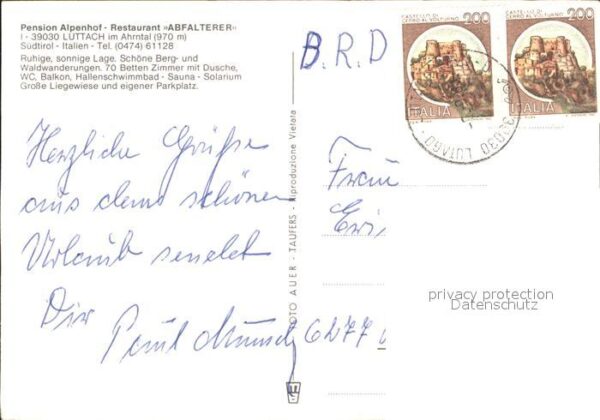 Pension Alpenhof - Restaurant »ABFALTERER«
I - 39030 LUTTACH im Ahrntal (970 m)
Südtirol - Italien - Tel. (0474) 61128
Ruhige, sonnige Lage. Schöne Berg- und
Waldwanderungen. 70 Betten Zimmer mit Dusche,
WC, Balkon, Hallenschwimmbad - Sauna - Solarium
Große Liegewiese und eigener Parkplatz.
B.R.D
CASTELLO DI
CERRO AL VOLTURNO 200
ITALIA
CASTELLO DI
CERRO AL VOLTURNO 200
ITALIA
39030 LUTAGO
Herzliche Grüße
aus dem schönen
Urlaub sendet
Dir
FOTO AUER - TAUFERS - Riproduzione Vietata
Frau
6277
privacy protection
Datenschutz